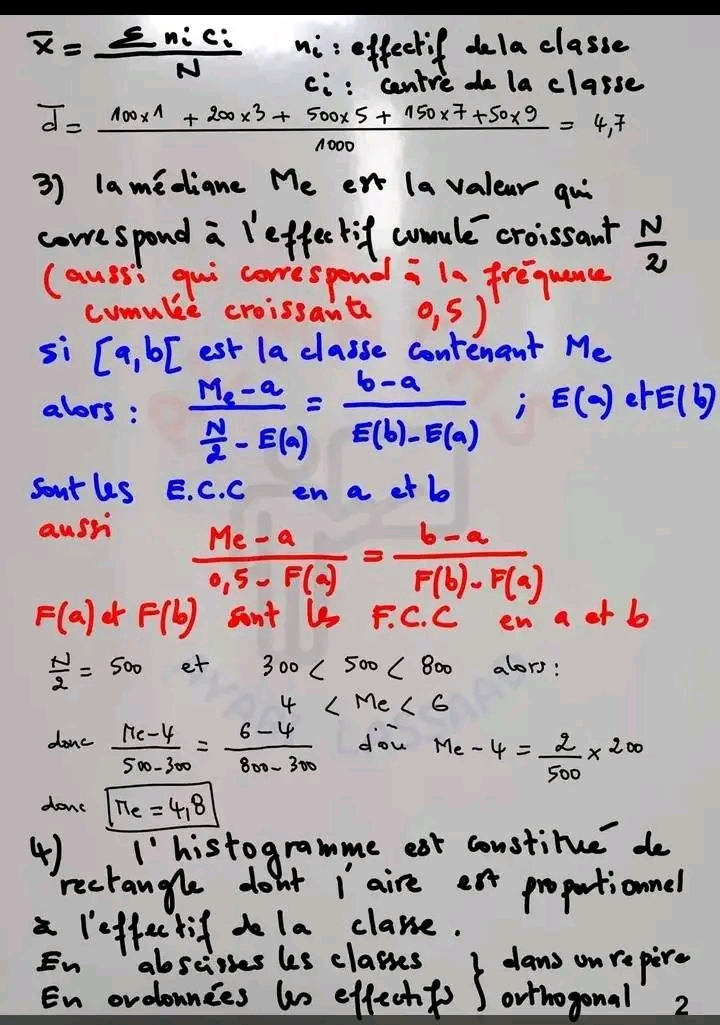 x̄ = Σ ni ci / N   ni : effectif de la classe
ci : centre de la classe
d̄ = (100x1 + 200x3 + 500x5 + 150x7 + 50x9) / 1000 = 4,7
3) la médiane Me est la valeur qui
correspond à l'effectif cumulé croissant N/2
(aussi qui correspond à la fréquence
cumulée croissante 0,5)
si [a,b[ est la classe contenant Me
alors : (Me-a) / (N/2 - E(a)) = (b-a) / (E(b)-E(a)) ; E(a) et E(b)
sont les E.C.C en a et b
aussi (Me-a) / (0,5 - F(a)) = (b-a) / (F(b)-F(a))
F(a) et F(b) sont les F.C.C en a et b
N/2 = 500 et 300 < 500 < 800 alors :
4 < Me < 6
donc (Me-4) / (500-300) = (6-4) / (800-300) d'où Me-4 = 2/500 x 200
donc Me = 4,8
4) l'histogramme est constitué de
rectangle dont l'aire est proportionnel
à l'effectif de la classe.
En abscisses les classes } dans un repère
En ordonnées les effectifs } orthogonal 2